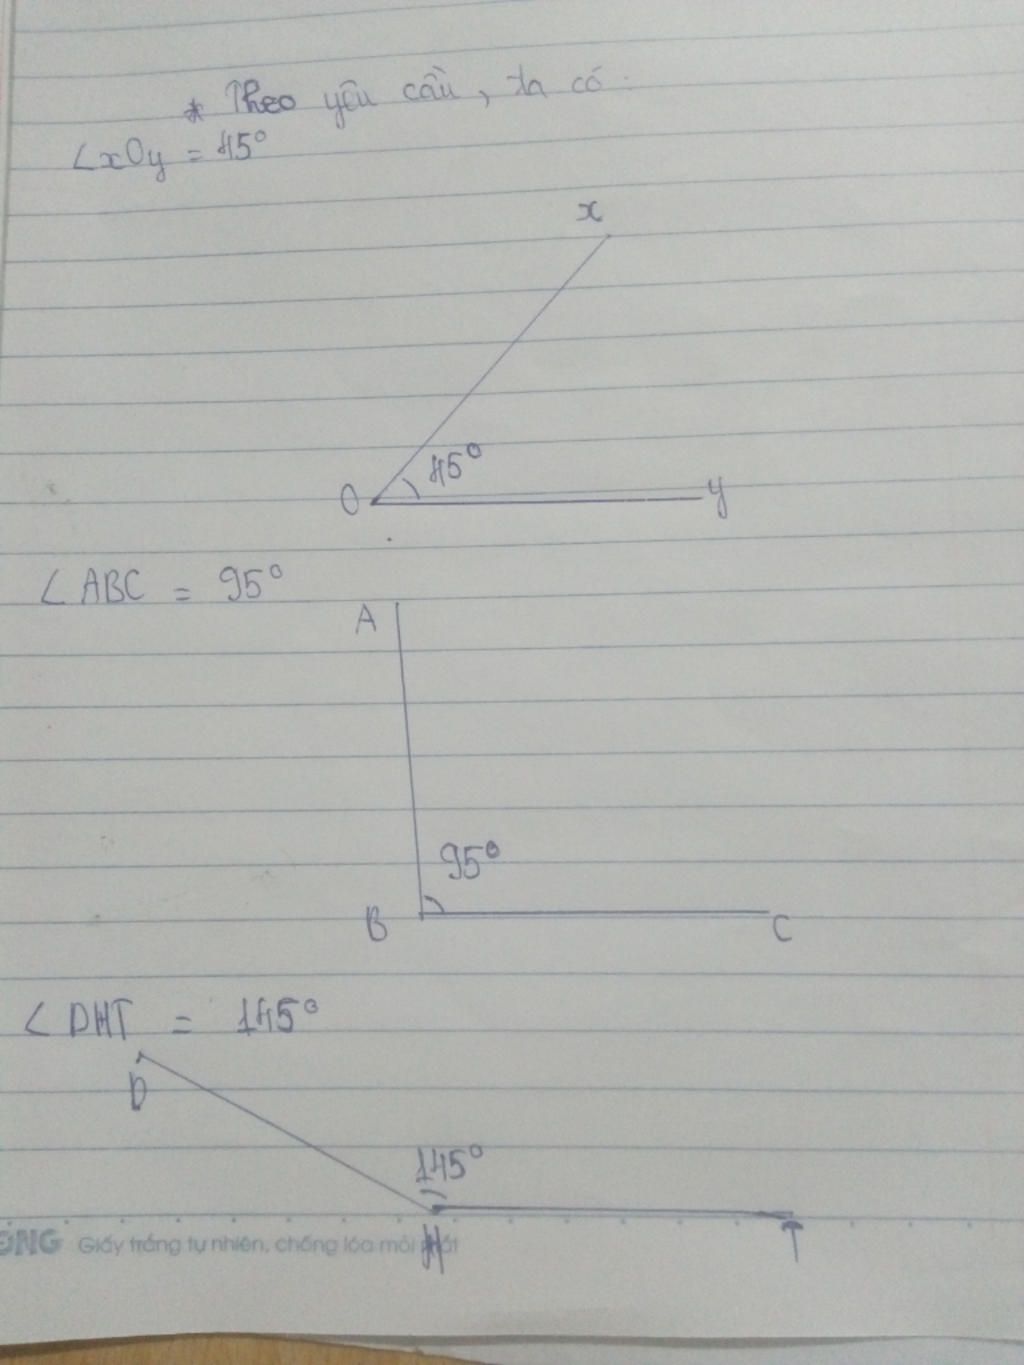 * Theo yêu cầu, ta có:
∠xOy = 45°
x
45°
O
y
∠ABC = 95°
A
95°
B
C
∠DHT = 145°
D
145°
H
T
ONG Giấy trắng tự nhiên, chống lóa mỏi mắt